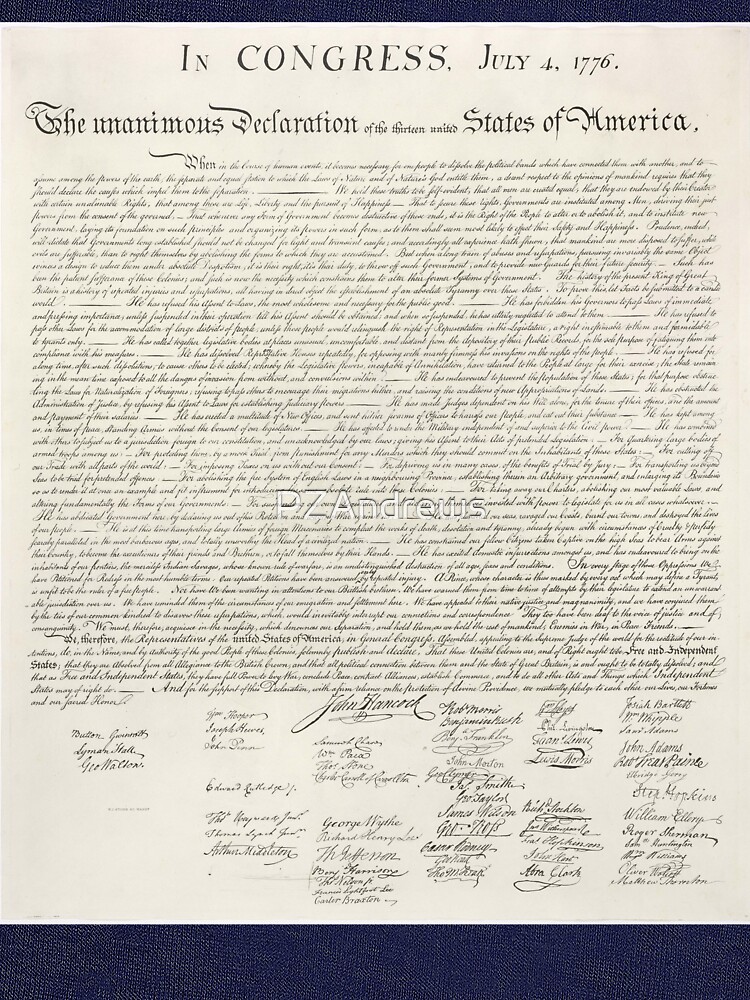 In CONGRESS, July 4, 1776.
The unanimous Declaration of the thirteen united States of America,
When in the Course of human events, it becomes necessary for one people to dissolve the political bands which have connected them with another, and to
assume among the powers of the earth, the separate and equal station to which the Laws of Nature and of Nature's God entitle them, a decent respect to the opinions of mankind requires that they
should declare the causes which impel them to the separation. We hold these truths to be self-evident, that all men are created equal, that they are endowed by their Creator
with certain unalienable Rights, that among these are Life, Liberty and the pursuit of Happiness. — That to secure these rights, Governments are instituted among Men, deriving their just
powers from the consent of the governed, — That whenever any Form of Government becomes destructive of these ends, it is the Right of the People to alter or to abolish it, and to institute new
Government, laying its foundation on such principles and organizing its powers in such form, as to them shall seem most likely to effect their Safety and Happiness. Prudence, indeed,
will dictate that Governments long established should not be changed for light and transient causes; and accordingly all experience hath shewn, that mankind are more disposed to suffer, while
evils are sufferable, than to right themselves by abolishing the forms to which they are accustomed. But when a long train of abuses and usurpations, pursuing invariably the same Object
evinces a design to reduce them under absolute Despotism, it is their right, it is their duty, to throw off such Government, and to provide new Guards for their future security. — Such has
been the patient sufferance of these Colonies; and such is now the necessity which constrains them to alter their former Systems of Government. The history of the present King of Great
Britain is a history of repeated injuries and usurpations, all having in direct object the establishment of an absolute Tyranny over these States. To prove this, let Facts be submitted to a candid
world. — He has refused his Assent to Laws, the most wholesome and necessary for the public good. — He has forbidden his Governors to pass Laws of immediate
and pressing importance, unless suspended in their operation till his Assent should be obtained; and when so suspended, he has utterly neglected to attend to them. — He has refused to
pass other Laws for the accommodation of large districts of people, unless those people would relinquish the right of Representation in the Legislature, a right inestimable to them and formidable
to tyrants only. — He has called together legislative bodies at places unusual, uncomfortable, and distant from the depository of their Public Records, for the sole purpose of fatiguing them into
compliance with his measures. — He has dissolved Representative Houses repeatedly, for opposing with manly firmness his invasions on the rights of the people. — He has refused for
a long time, after such dissolutions, to cause others to be elected; whereby the Legislative powers, incapable of Annihilation, have returned to the People at large for their exercise; the State remain-
ing in the mean time exposed to all the dangers of invasion from without, and convulsions within. — He has endeavoured to prevent the population of these States; for that purpose obstruc-
ting the Laws for Naturalization of Foreigners; refusing to pass others to encourage their migrations hither, and raising the conditions of new Appropriations of Lands. — He has obstructed the
Administration of Justice, by refusing his Assent to Laws for establishing Judiciary powers. — He has made Judges dependent on his Will alone, for the tenure of their offices, and the amount
and payment of their salaries. — He has erected a multitude of New Offices, and sent hither swarms of Officers to harrass our people, and eat out their substance. — He has kept among
us, in times of peace, Standing Armies without the Consent of our legislatures. — He has affected to render the Military independent of and superior to the Civil power. — He has combined
with others to subject us to a jurisdiction foreign to our constitution, and unacknowledged by our laws; giving his Assent to their Acts of pretended Legislation: — For Quartering large bodies of
armed troops among us: — For protecting them, by a mock Trial, from punishment for any Murders which they should commit on the Inhabitants of these States: — For cutting off
our Trade with all parts of the world: — For imposing Taxes on us without our Consent: — For depriving us in many cases, of the benefits of Trial by Jury: — For transporting us beyond
Seas to be tried for pretended offences: — For abolishing the free System of English Laws in a neighbouring Province, establishing therein an Arbitrary government, and enlarging its Boundaries
so as to render it at once an example and fit instrument for introducing the same absolute rule into these Colonies: — For taking away our Charters, abolishing our most valuable Laws, and
altering fundamentally the Forms of our Governments: — For suspending our own Legislatures, and declaring themselves invested with power to legislate for us in all cases whatsoever. —
He has abdicated Government here, by declaring us out of his Protection and waging War against us. — He has plundered our seas, ravaged our Coasts, burnt our towns, and destroyed the lives
of our people. — He is at this time transporting large Armies of foreign Mercenaries to compleat the works of death, desolation and tyranny, already begun with circumstances of Cruelty & perfidy
scarcely paralleled in the most barbarous ages, and totally unworthy the Head of a civilized nation. — He has constrained our fellow Citizens taken Captive on the high Seas to bear Arms against
their Country, to become the executioners of their friends and Brethren, or to fall themselves by their Hands. — He has excited domestic insurrections amongst us, and has endeavoured to bring on the
inhabitants of our frontiers, the merciless Indian Savages, whose known rule of warfare, is an undistinguished destruction of all ages, sexes and conditions. In every stage of these Oppressions We
have Petitioned for Redress in the most humble terms: Our repeated Petitions have been answered only by repeated injury. A Prince, whose character is thus marked by every act which may define a Tyrant,
is unfit to be the ruler of a free people. Nor have We been wanting in attentions to our Brittish brethren. We have warned them from time to time of attempts by their legislature to extend an unwarrant-
able jurisdiction over us. We have reminded them of the circumstances of our emigration and settlement here. We have appealed to their native justice and magnanimity, and we have conjured them
by the ties of our common kindred to disavow these usurpations, which, would inevitably interrupt our connections and correspondence. They too have been deaf to the voice of justice and of
consanguinity. We must, therefore, acquiesce in the necessity, which denounces our Separation, and hold them, as we hold the rest of mankind, Enemies in War, in Peace Friends. —
We, therefore, the Representatives of the united States of America, in General Congress, Assembled, appealing to the Supreme Judge of the world for the rectitude of our in-
tentions, do, in the Name, and by Authority of the good People of these Colonies, solemnly publish and declare, That these United Colonies are, and of Right ought to be Free and Independent
States; that they are Absolved from all Allegiance to the British Crown, and that all political connection between them and the State of Great Britain, is and ought to be totally dissolved; and
that as Free and Independent States, they have full Power to levy War, conclude Peace, contract Alliances, establish Commerce, and to do all other Acts and Things which Independent
States may of right do. — And for the support of this Declaration, with a firm reliance on the protection of divine Providence, we mutually pledge to each other our Lives, our Fortunes
and our sacred Honor.
PZAndrews
Button Gwinnett
Lyman Hall
Geo Walton.
Wm Hooper
Joseph Hewes,
John Penn
Edward Rutledge.
Thos Heyward Junr.
Thomas Lynch Junr.
Arthur Middleton
John Hancock
Samuel Chase
Wm Paca
Thos Stone
Charles Carroll of Carrollton
George Wythe
Richard Henry Lee
Th Jefferson
Benj Harrison
Thos Nelson jr.
Francis Lightfoot Lee
Carter Braxton
Robt Morris
Benjamin Rush
Benj. Franklin
John Morton
Geo Clymer
Jas. Smith
Geo. Taylor
James Wilson
Geo. Ross
Caesar Rodney
Geo Read
Tho M:Kean
Wm Floyd
Phil. Livingston
Frans. Lewis
Lewis Morris
Richd. Stockton
Jno Witherspoon
Fras. Hopkinson
John Hart
Abra Clark
Josiah Bartlett
Wm Whipple
Saml Adams
John Adams
Robt Treat Paine
Elbridge Gerry
Step Hopkins
William Ellery
Roger Sherman
Saml Huntington
Wm Williams
Oliver Wolcott
Matthew Thornton